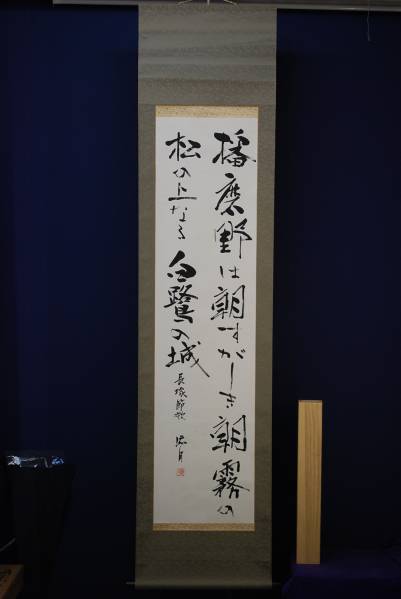 播磨野は朝すがしき朝霧の
松の上なる白鷺の城
長塚節歌